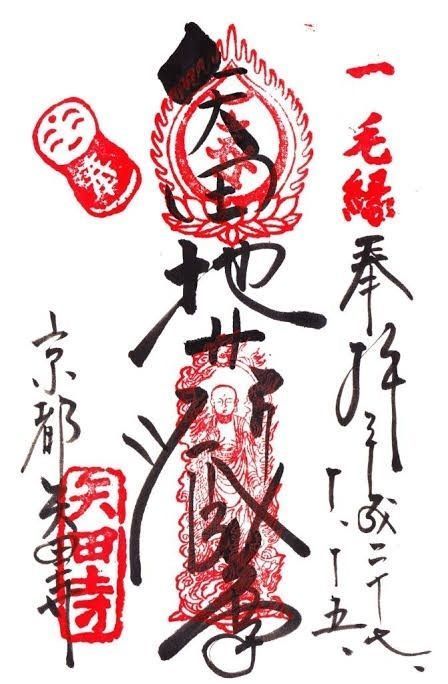 一毛縁
奉拝 平成二十七、
十、十五、
矢田地蔵尊
奉
京都 矢田寺
矢田寺